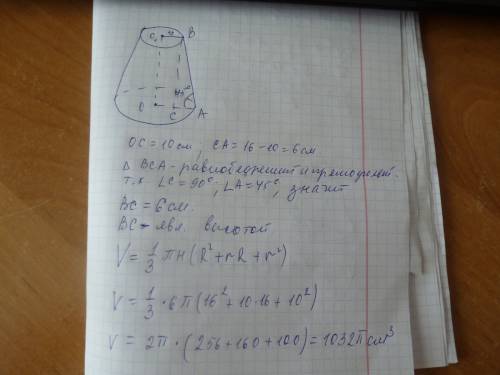 O₁
B
45°
O
C
A
OC = 10 см, CA = 16 - 10 = 6 см
Δ BCA - равнобедренный и прямоугол.
т.к ∠C = 90°, ∠A = 45°, значит
BC = 6 см.
BC - явл. высотой
V = 1/3 πH (R² + rR + r²)
V = 1/3 · 6π (16² + 10·16 + 10²)
V = 2π · (256 + 160 + 100) = 1032π см³